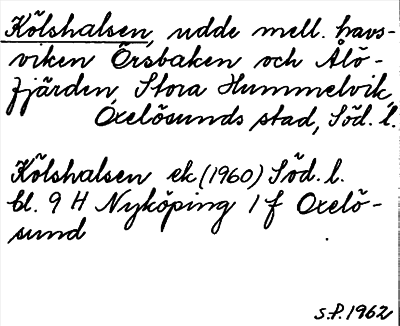 Kölshalsen, udde mell. havs-
viken Örsbaken och Ålö-
fjärden, Stora Hummelvik,
Oxelösunds stad, Söd. l.
Kölshalsen ek (1960) Söd. l.
bl. 9 H Nyköping 1 f Oxelö-
sund
S.P. 1962